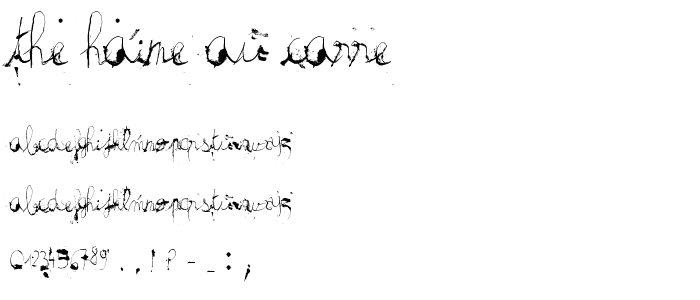 the haine au carre
abcdefghijklmnopqrstuvwxyz
abcdefghijklmnopqrstuvwxyz
0123456789 . , ! ? - _ : ;